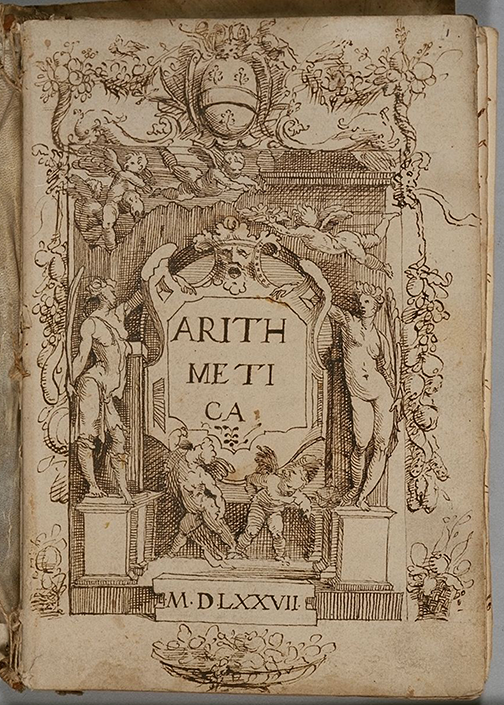 ARITH
METI
CA
M·DLXXVII·